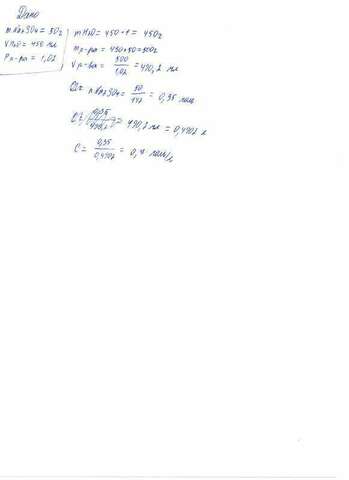 Дано
m Na2SO4 = 50г
V H2O = 450 мл
ρ р-ра = 1,02
m H2O = 450 · 1 = 450г
m р-ра = 450 + 50 = 500г
V р-ра = 500/1,02 = 490,2 мл
n Na2SO4 = 50/142 = 0,35 моль
490,2 мл = 0,4902 л
C = 0,35/0,4902 = 0,7 моль/л